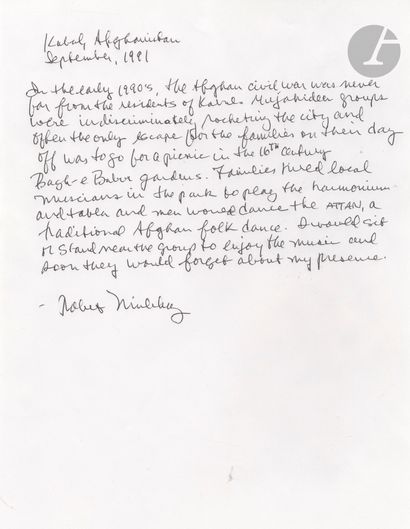 Kabul, Afghanistan
September, 1991
In the early 1990's, the Afghan civil war was never
far from the residents of Kabul. Mujahideen groups
were indiscriminately rocketing the city and
often the only escape for the families on their day
off was to go for a picnic in the 16th century
Bagh-e Babur gardens. Families hired local
musicians in the park to play the harmonium
and tabla and men would dance the ATTAN, a
traditional Afghan folk dance. I would sit
or stand near the group to enjoy the music and
soon they would forget about my presence.
- Robert